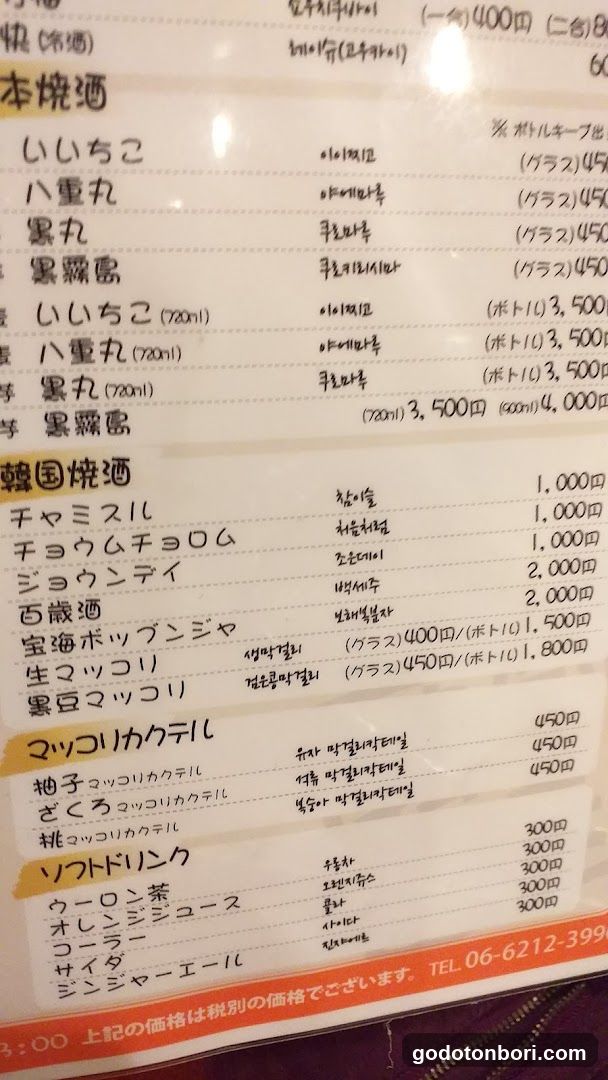 快(冷酒) 레이슈(고우카이) 60
本焼酒
※ ボトルキープ出
いいちこ 이이찌고 (グラス)450
八重丸 야에마루 (グラス)450
黒丸 쿠로마루 (グラス)450
黒霧島 쿠로키리시마 (グラス)450
いいちこ(720ml) 이이찌고 (ボトル)3,500
八重丸(720ml) 야에마루 (ボトル)3,500
黒丸(720ml) 쿠로마루 (ボトル)3,500
黒霧島 (720ml)3,500円 (900ml)4,000円
韓国焼酒
チャミスル 참이슬 1,000円
チョウムチョロム 처음처럼 1,000円
ジョウンデイ 조은데이 1,000円
百歳酒 백세주 2,000円
宝海ボップンジャ 보해복분자 2,000円
生マッコリ 생막걸리 (グラス)400円/(ボトル)1,500円
黒豆マッコリ 검은콩막걸리 (グラス)450円/(ボトル)1,800円
マッコリカクテル
柚子マッコリカクテル 유자 막걸리칵테일 450円
ざくろマッコリカクテル 석류 막걸리칵테일 450円
桃マッコリカクテル 복숭아 막걸리칵테일 450円
ソフトドリンク
ウーロン茶 우롱차 300円
オレンジジュース 오렌지쥬스 300円
コーラー 콜라 300円
サイダ 사이다 300円
ジンジャーエール 진쟈에르 300円
3:00 上記の価格は税別の価格でございます。 TEL 06-6212-399
godotonbori.com